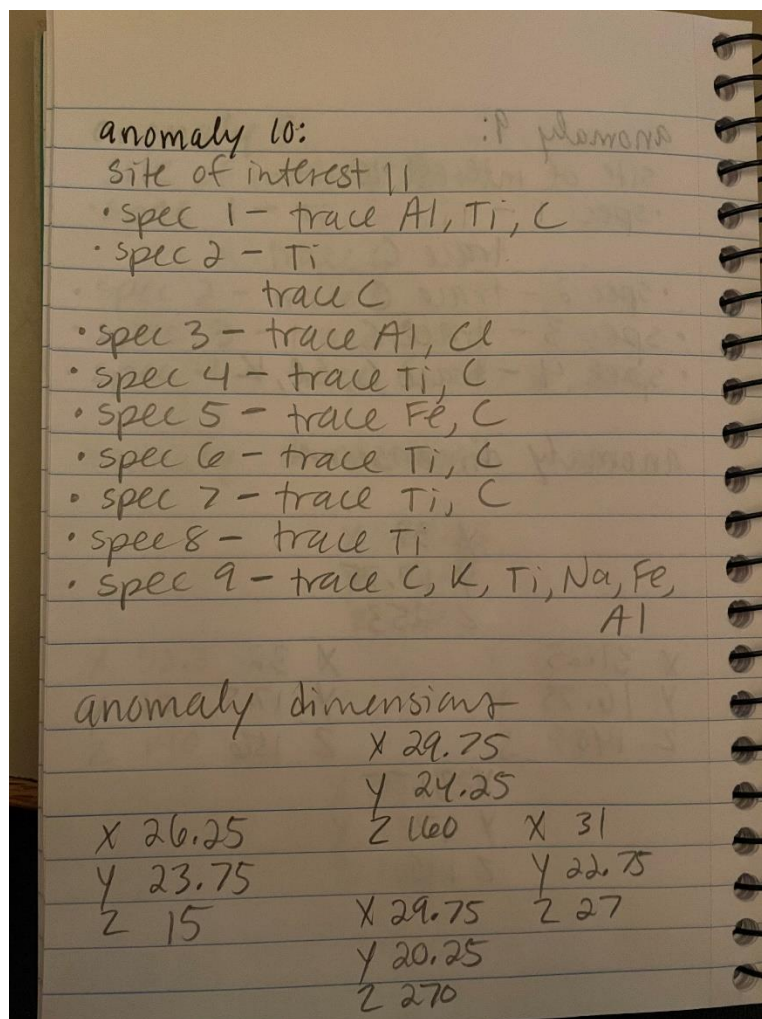 anomaly 10:
site of interest 11
• spec 1 - trace Al, Ti, C
• spec 2 - Ti
trace C
• spec 3 - trace Al, Cl
• spec 4 - trace Ti, C
• spec 5 - trace Fe, C
• spec 6 - trace Ti, C
• spec 7 - trace Ti, C
• spec 8 - trace Ti
• spec 9 - trace C, K, Ti, Na, Fe,
Al
anomaly dimensions
X 29.75
Y 24.25
Z 160
X 26.25
Y 23.75
Z 15
X 31
Y 22.75
Z 27
X 29.75
Y 20.25
Z 270